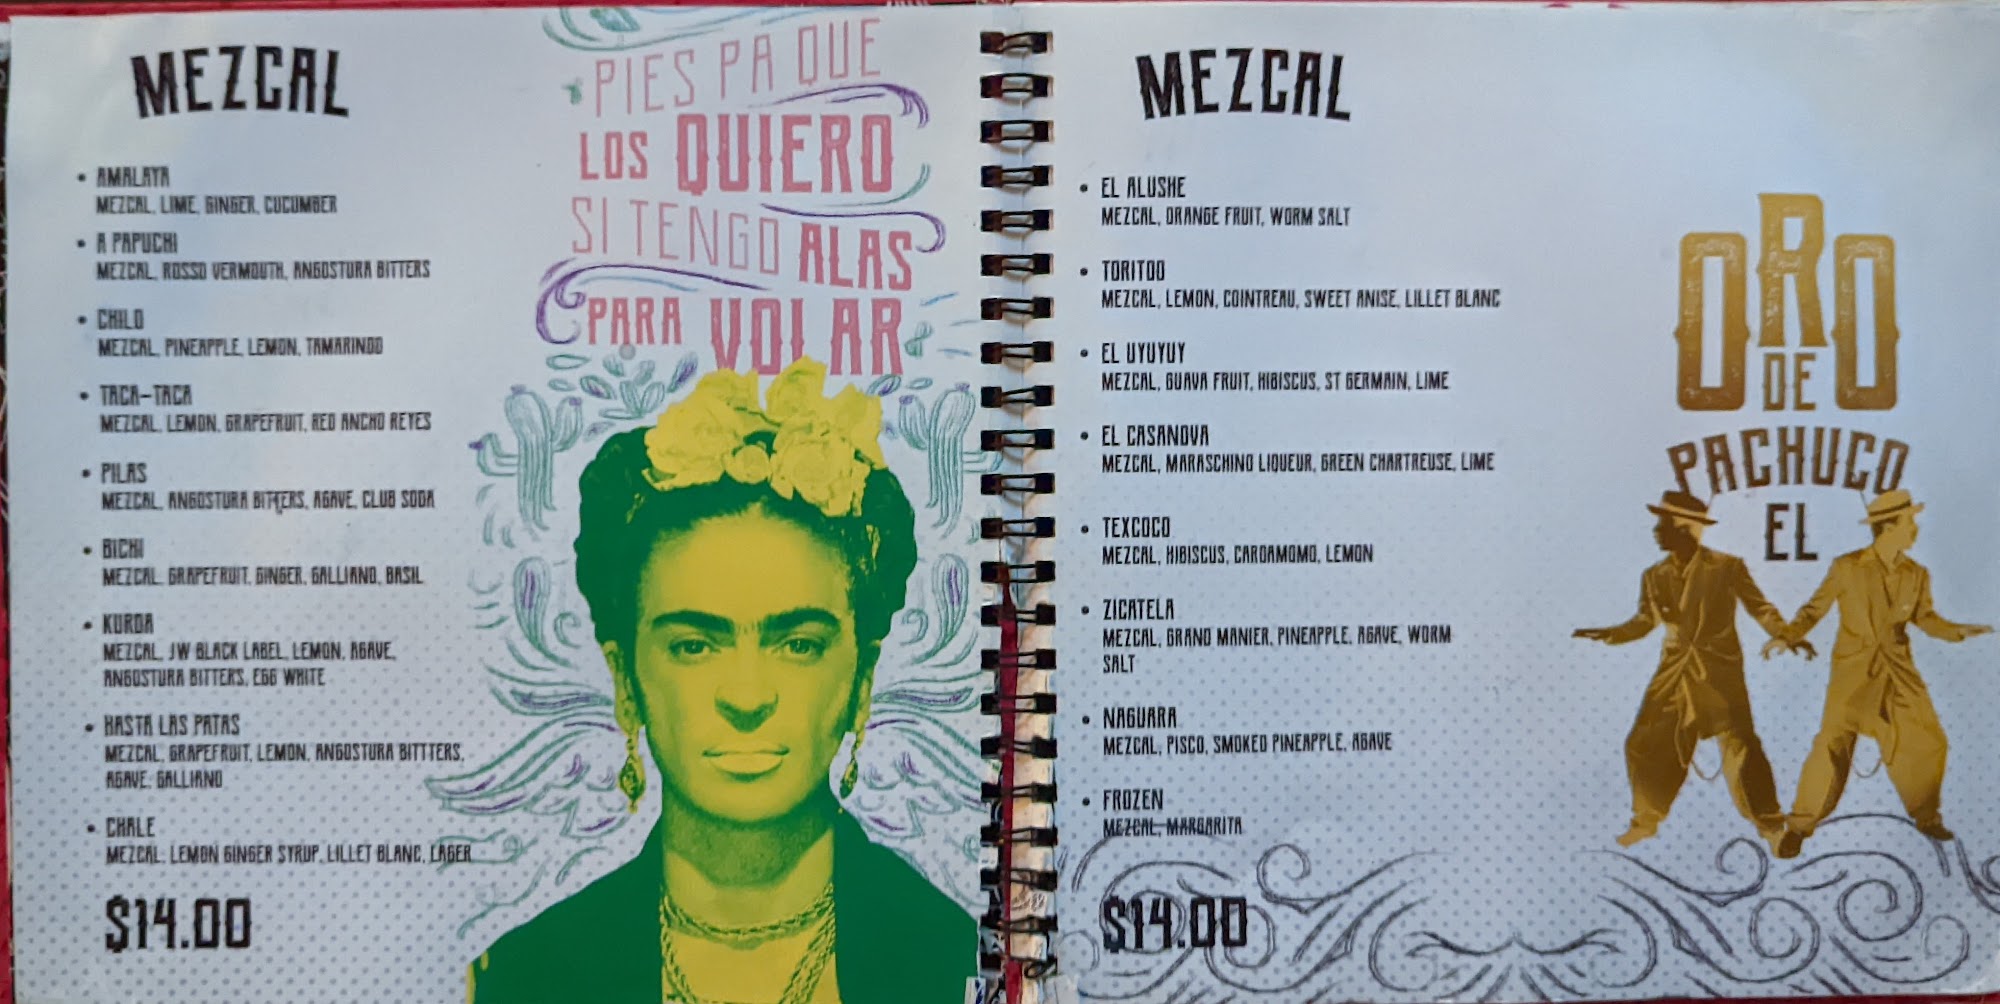 MEZCAL
• AMALAYA
MEZCAL, LIME, GINGER, CUCUMBER
• A PAPUCHI
MEZCAL, ROSSO VERMOUTH, ANGOSTURA BITTERS
• CHILO
MEZCAL, PINEAPPLE, LEMON, TAMARINDO
• TACA-TACA
MEZCAL, LEMON, GRAPEFRUIT, RED ANCHO REYES
• PILAS
MEZCAL, ANGOSTURA BITTERS, AGAVE, CLUB SODA
• BICHI
MEZCAL, GRAPEFRUIT, GINGER, GALLIANO, BASIL
• KURDA
MEZCAL, JW BLACK LABEL, LEMON, AGAVE,
ANGOSTURA BITTERS, EGG WHITE
• HASTA LAS PATAS
MEZCAL, GRAPEFRUIT, LEMON, ANGOSTURA BITTTERS,
AGAVE, GALLIANO
• CHALE
MEZCAL, LEMON GINGER SYRUP, LILLET BLANC, LAGER
$14.00
PIES PA QUE
LOS QUIERO
SI TENGO ALAS
PARA VOLAR
MEZCAL
• EL ALUSHE
MEZCAL, ORANGE FRUIT, WORM SALT
• TORITOO
MEZCAL, LEMON, COINTREAU, SWEET ANISE, LILLET BLANC
• EL UYUYUY
MEZCAL, GUAVA FRUIT, HIBISCUS, ST GERMAIN, LIME
• EL CASANOVA
MEZCAL, MARASCHINO LIQUEUR, GREEN CHARTREUSE, LIME
• TEXCOCO
MEZCAL, HIBISCUS, CARDAMOMO, LEMON
• ZICATELA
MEZCAL, GRAND MANIER, PINEAPPLE, AGAVE, WORM
SALT
• NAGUARA
MEZCAL, PISCO, SMOKED PINEAPPLE, AGAVE
• FROZEN
MEZCAL, MARGARITA
$14.00
ORO
DE
PACHUCO
EL